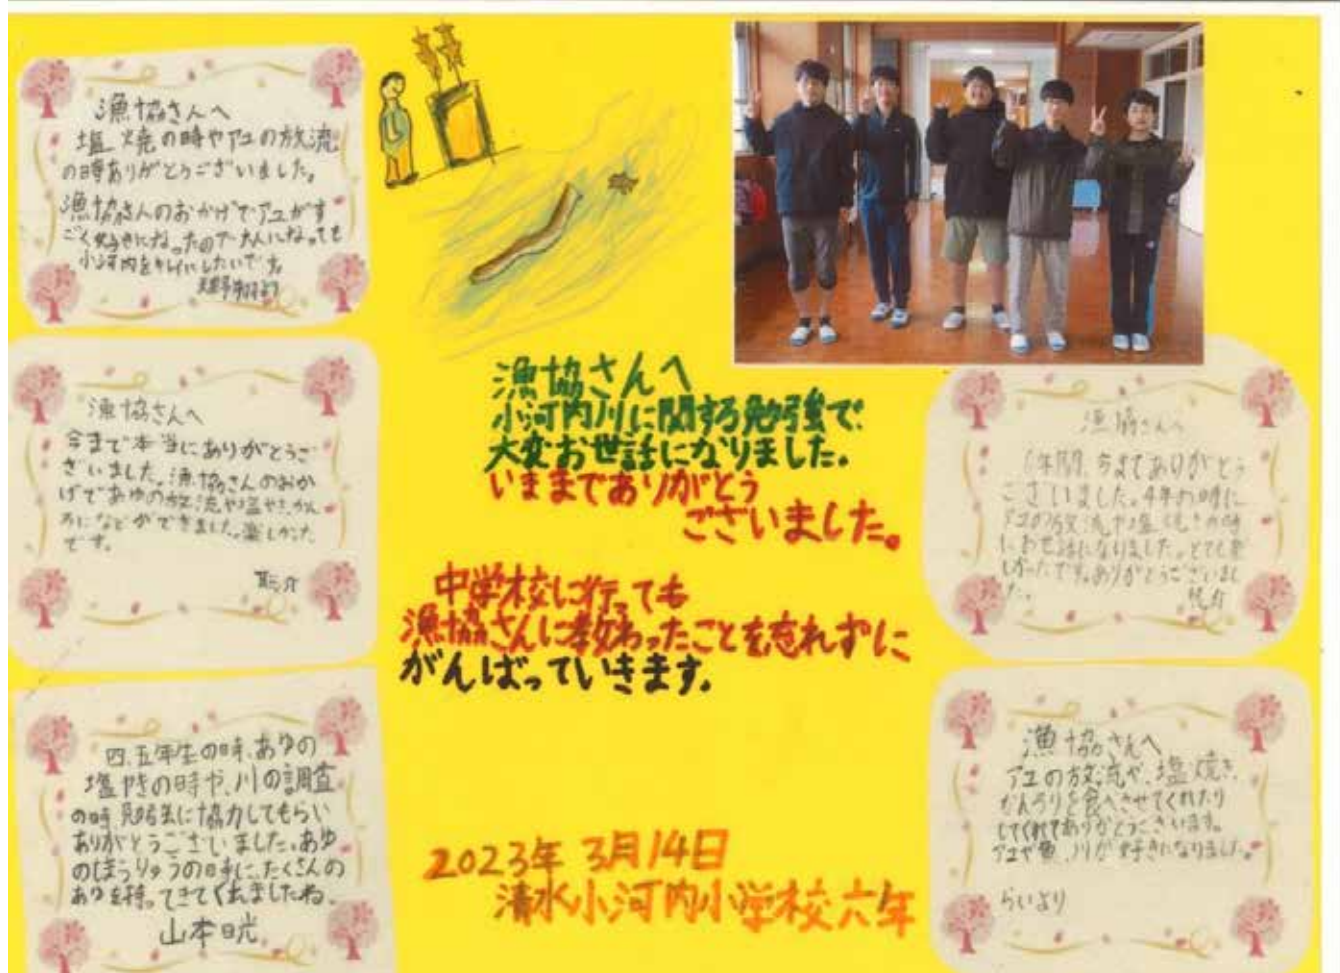 漁協さんへ
塩焼の時やアユの放流
の時ありがとうございました。
漁協さんのおかげでアユがす
ごく好きになったので大人になっても
小河内をキレイにしたいです。
より
漁協さんへ
今まで本当にありがとうご
ざいました。漁協さんのおか
げであゆの放流や塩やき、かん
ろになどができました。楽しかった
です。
四、五年生の時、あゆの
塩やきの時や、川の調査
の時、勉強に協力してもらい
ありがとうございました。あゆ
のほうりゅうの日時に、たくさんの
あゆを持ってきてくれましたね。
山本日光
漁協さんへ
小河内川に関する勉強で
大変お世話になりました。
いままでありがとう
ございました。
中学校に行っても
漁協さんに教わったことを忘れずに
がんばっていきます。
2023年 3月14日
清水小河内小学校六年
漁協さんへ
6年間、今までありがとう
ございました。4年の時に
アユの放流や塩焼きの時
にお世話になりました。とても楽
しかったです。ありがとうございまし
た。
漁協さんへ
アユの放流や、塩焼き、
かんろにを食べさせてくれたり
してくれてありがとうございます。
アユや魚、川が好きになりました。
らいより